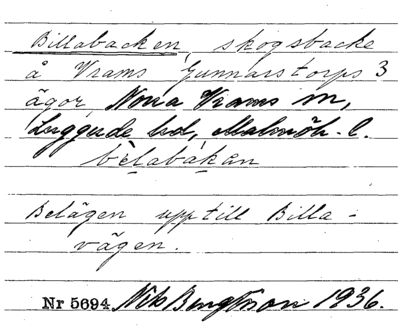 Billabacken, skogsbacke
å Vrams Gunnarstorps 3
ägor, Norra Vrams sn,
Luggude hd, Malmöh. l.
bèlabákan
Belägen upp till Billa-
vägen.
Nr 5694 Nils Bengtsson 1936.